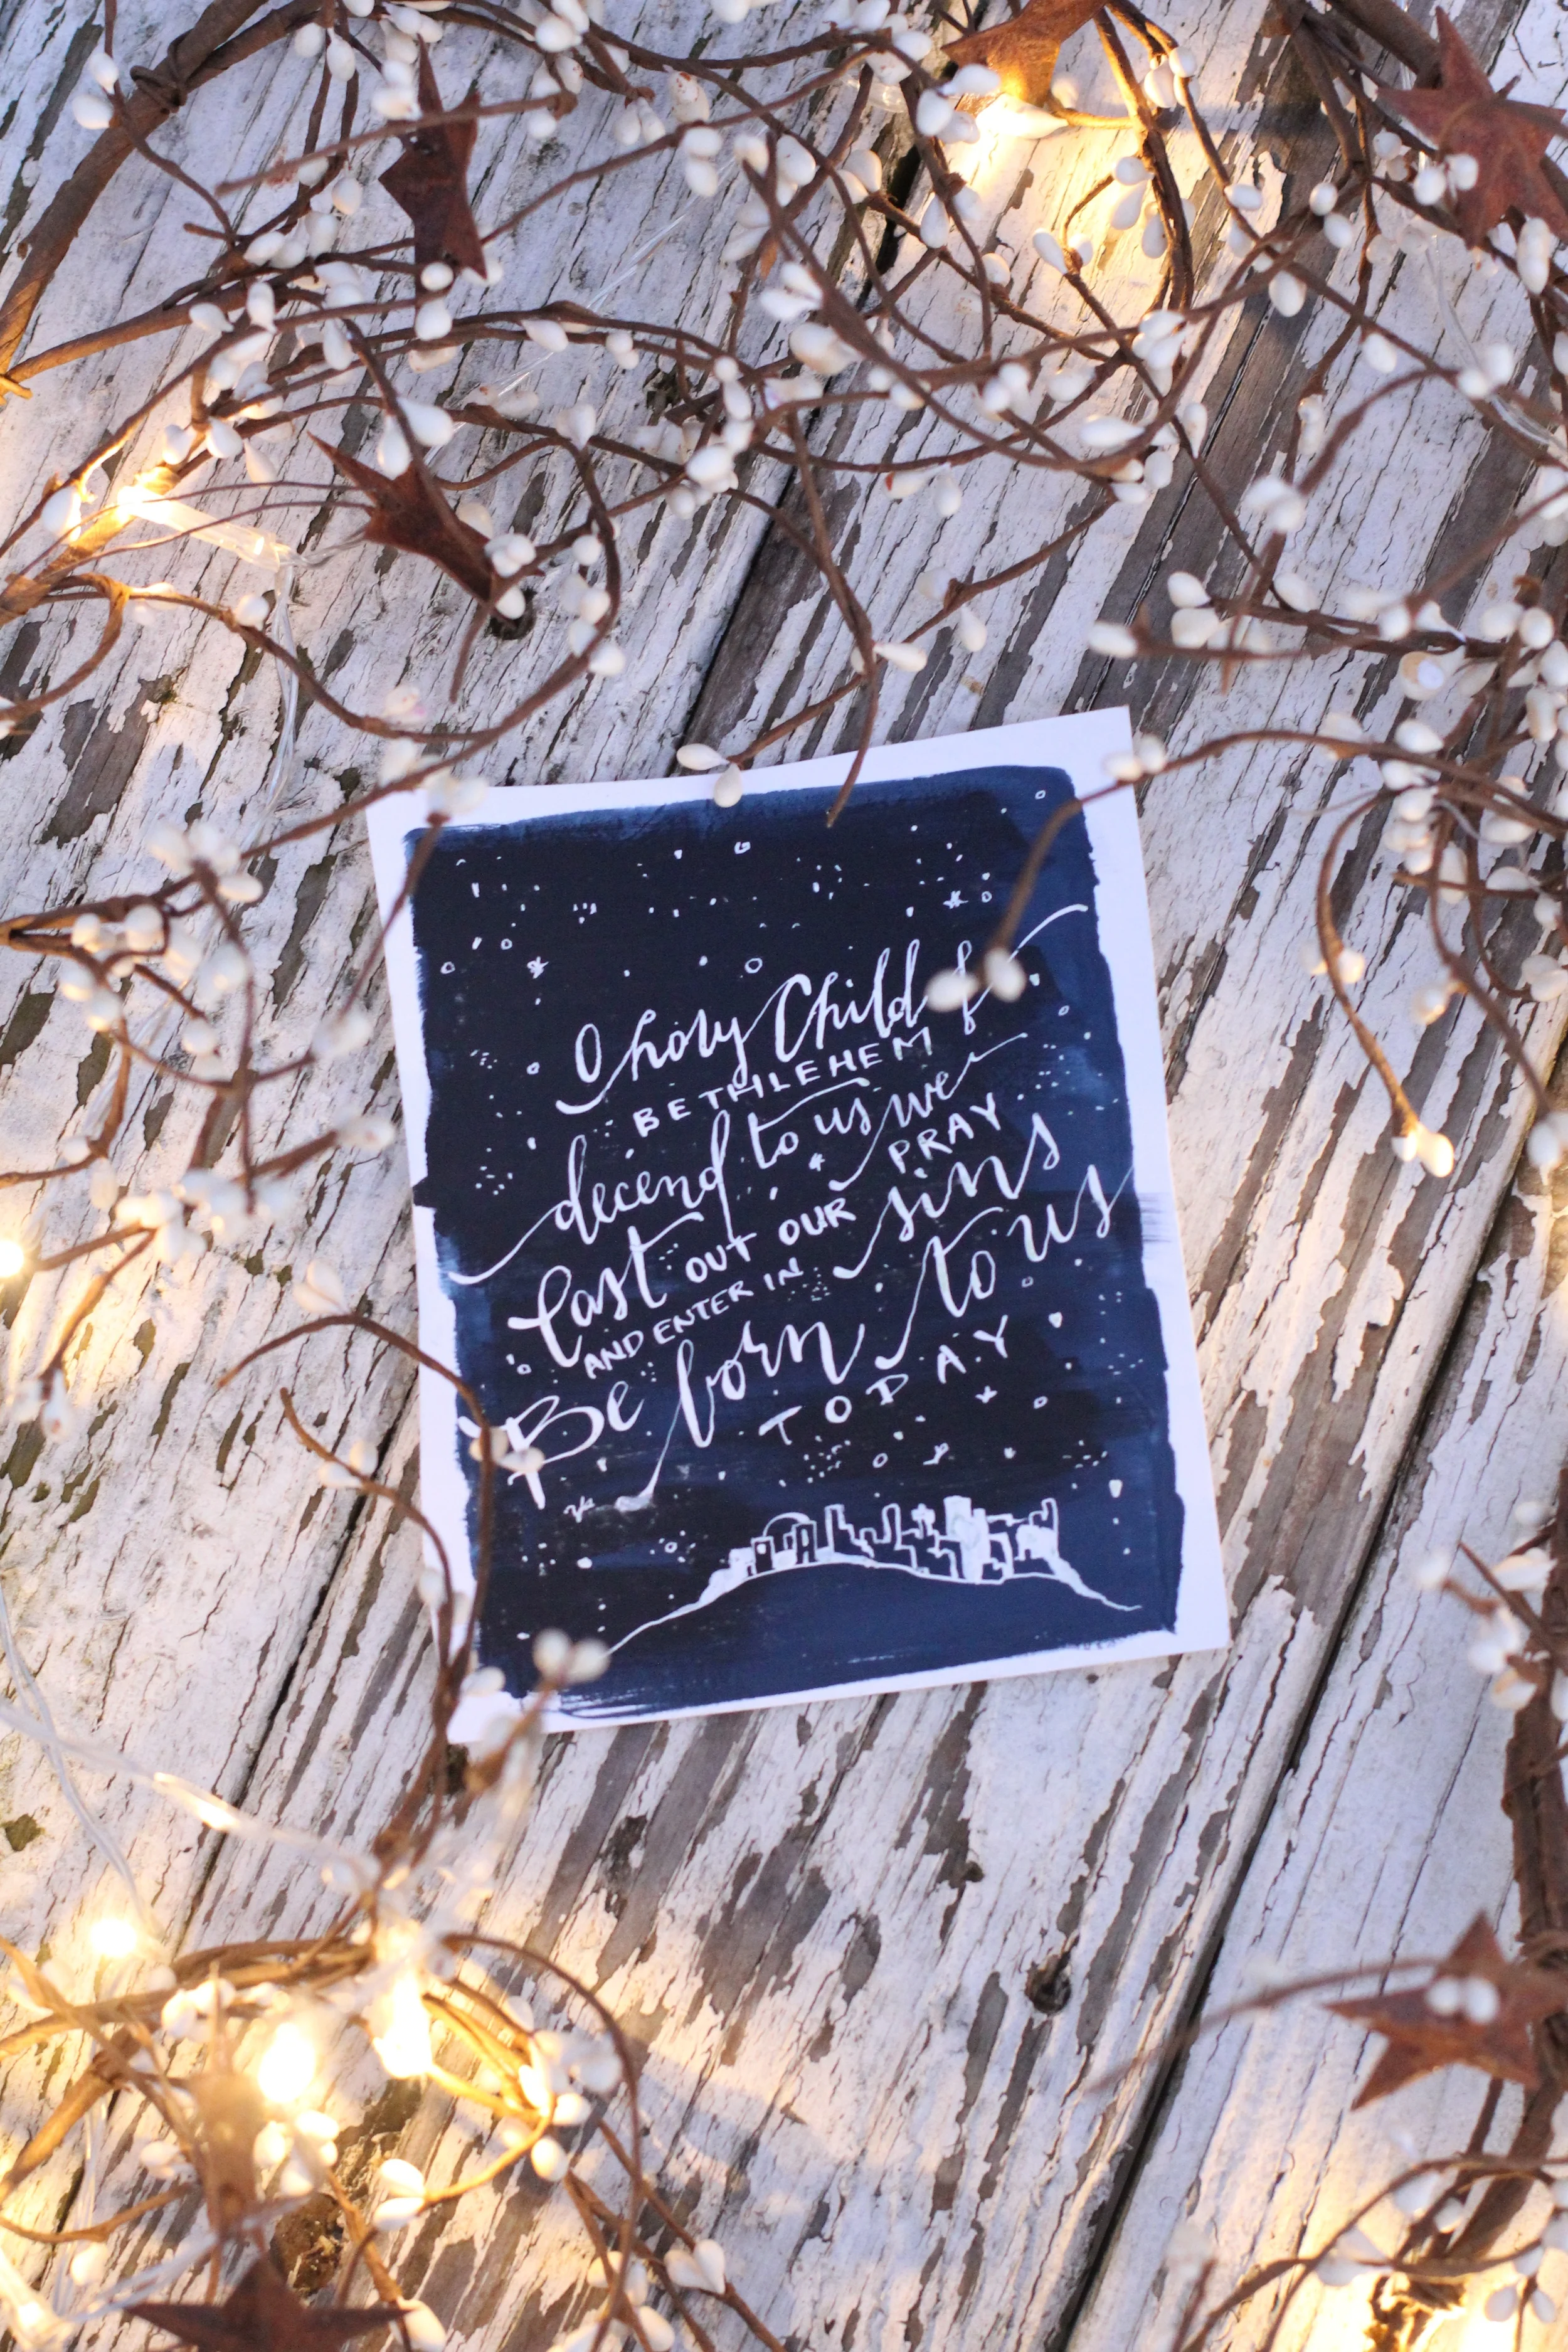 O holy Child of
BETHLEHEM
decend to us we
PRAY
Cast OUT OUR sins
AND ENTER IN
Be born to us
TODAY